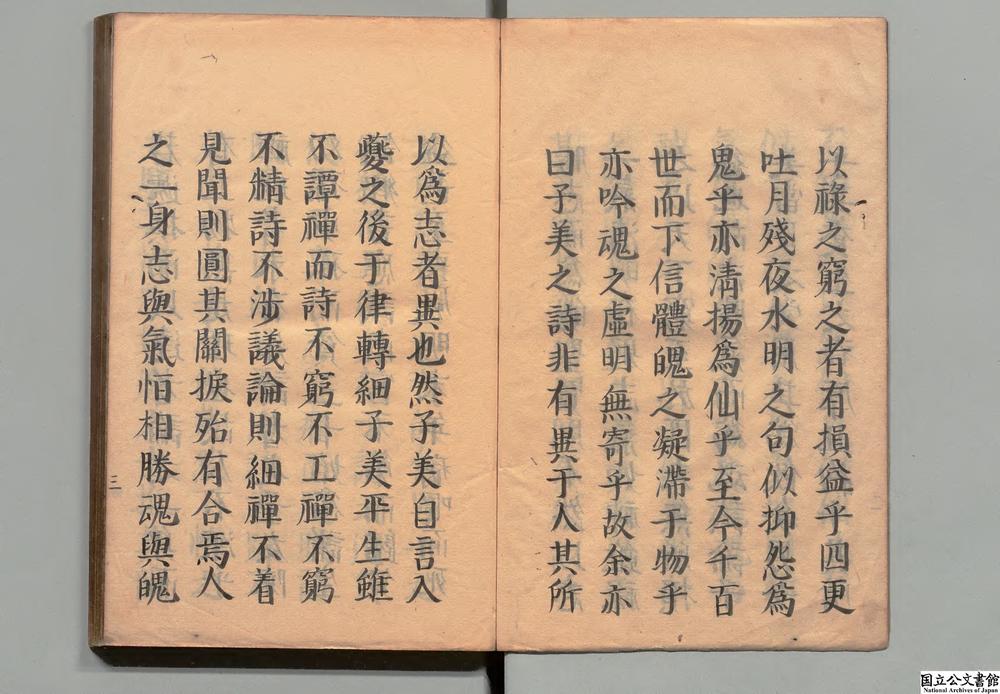 以祿之窮之者有損益乎四更
吐月殘夜水明之句似抑怨爲
鬼乎亦淸揚爲仙乎至今千百
世而下信體魄之凝滯于物乎
亦吟魂之虛明無寄乎故余亦
曰子美之詩非有異于人其所
以爲志者異也然子美自言入
夔之後于律轉細子美平生雖
不譚禪而詩不窮不工禪不窮
不精詩不涉議論則細禪不着
見聞則圓其關捩殆有合焉人
之一身志與氣怕相勝魂與魄
三
国立公文書館
National Archives of Japan